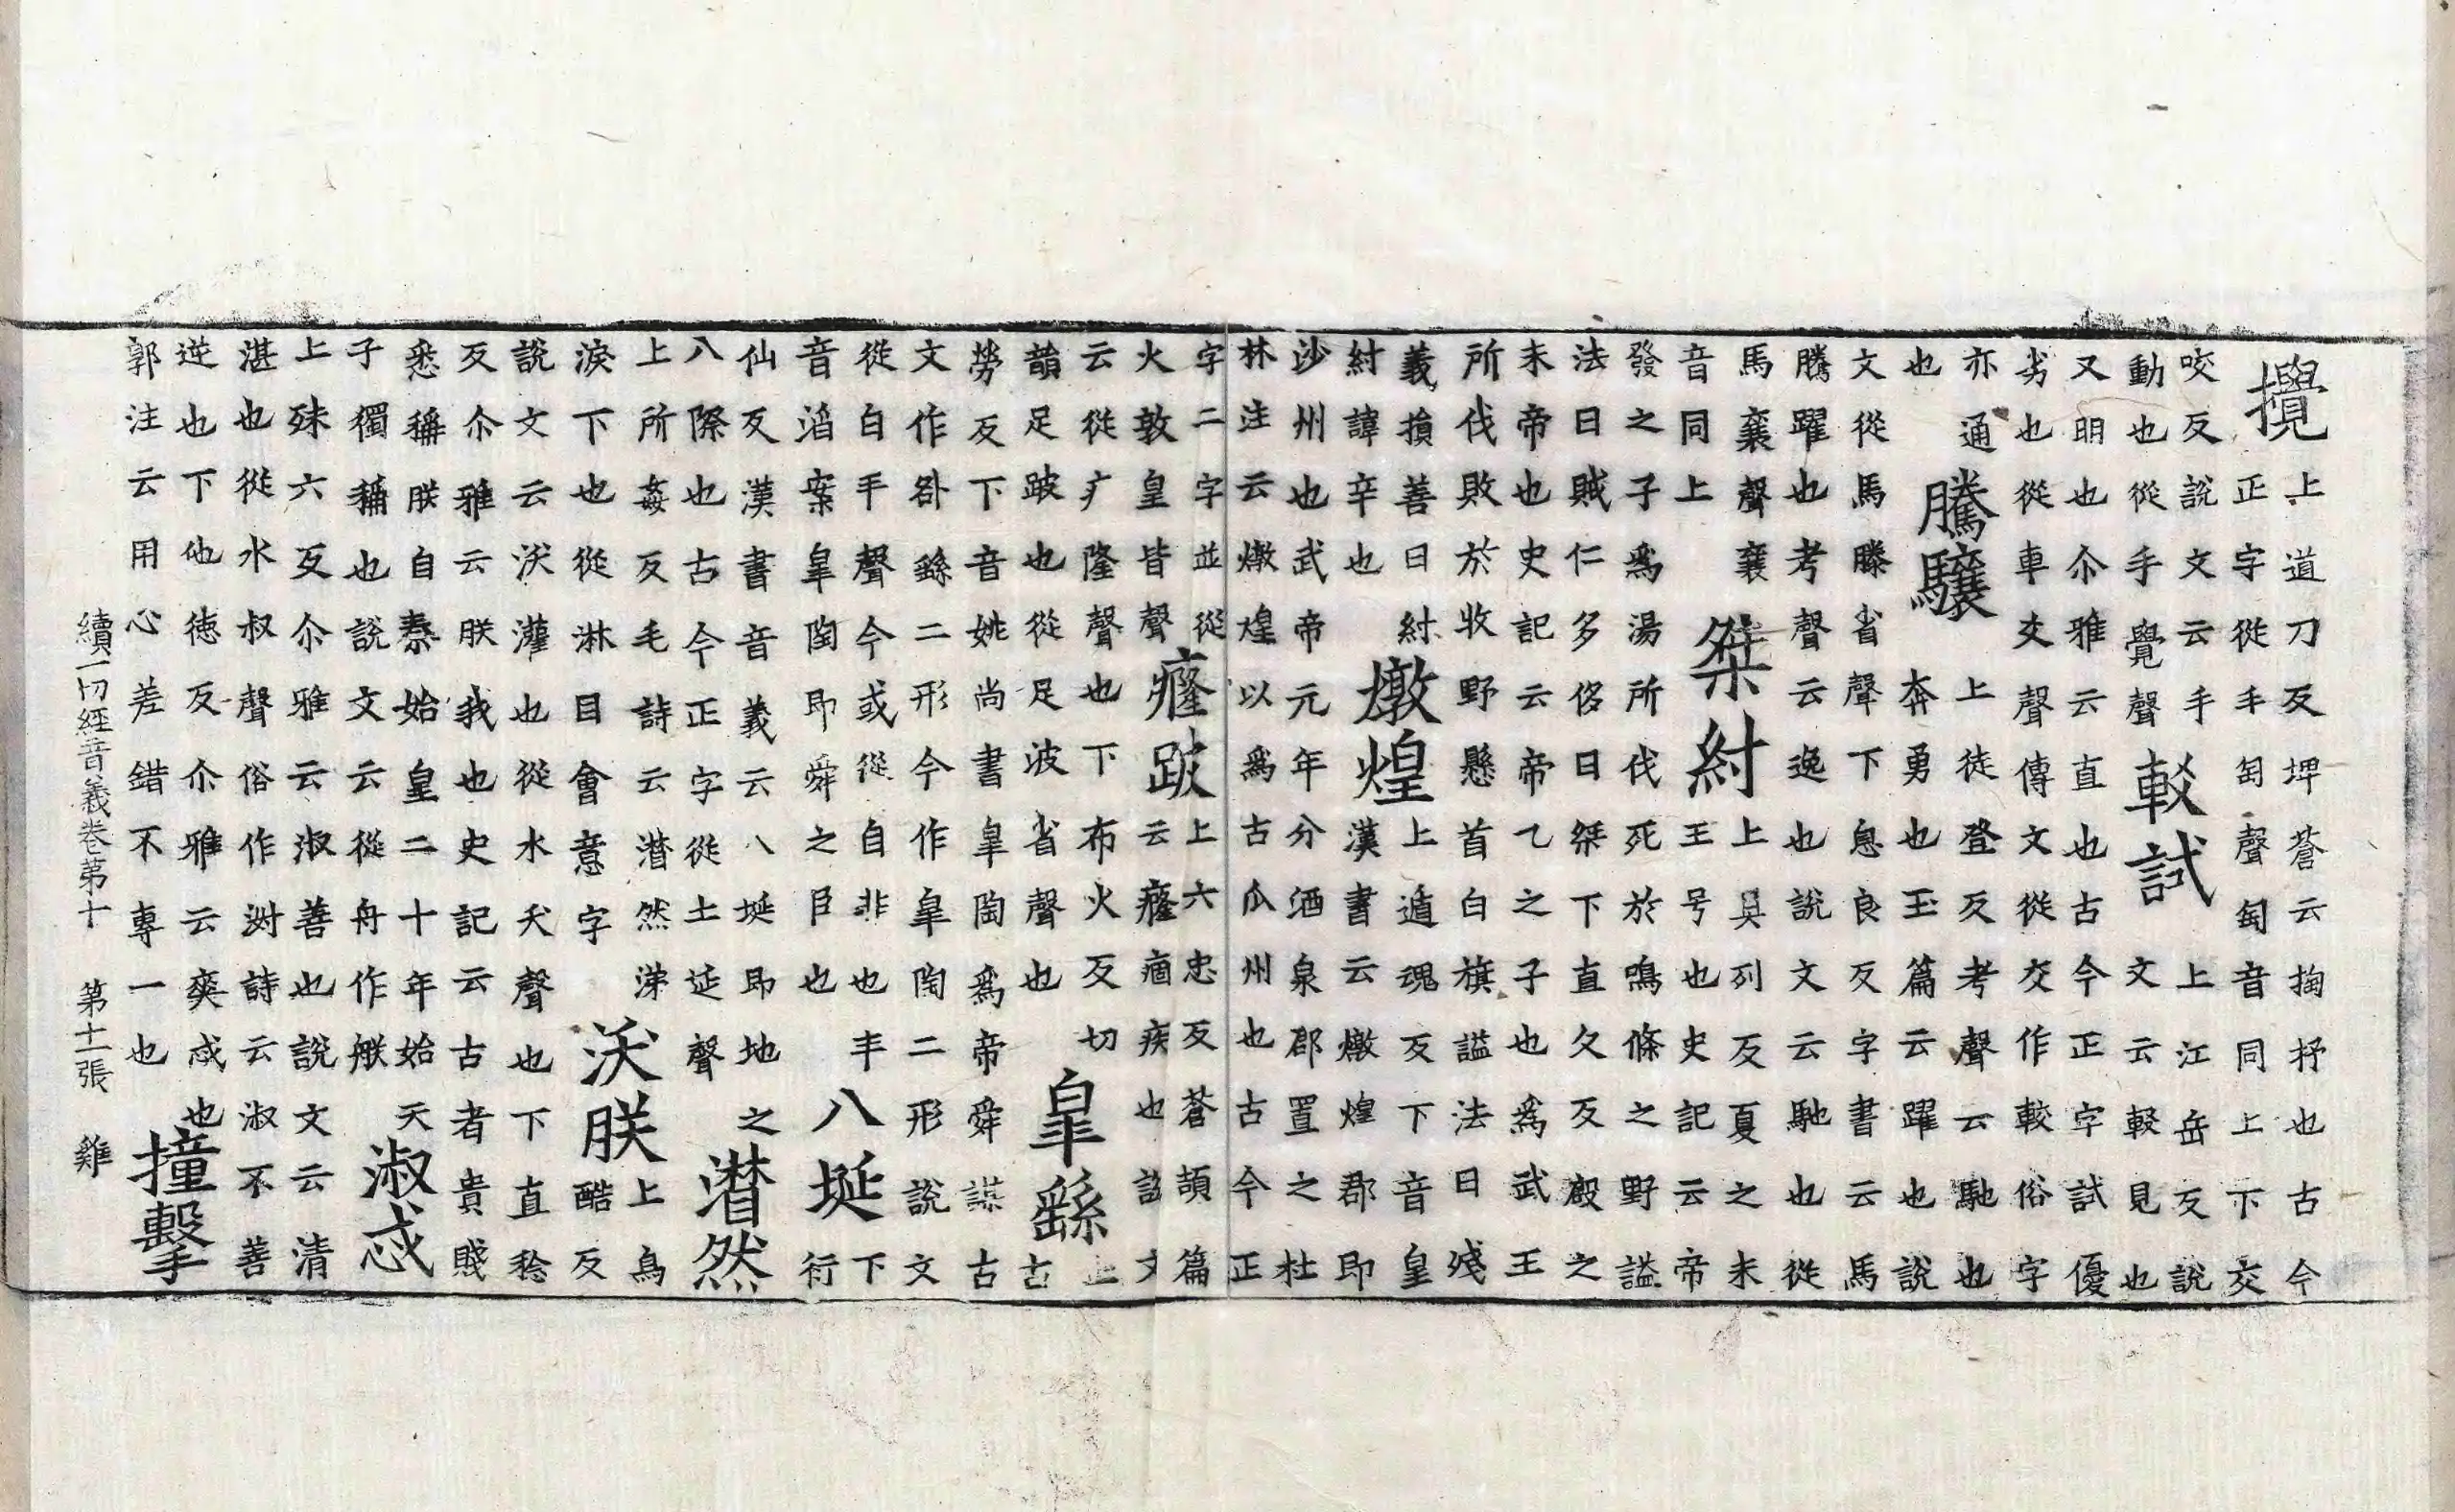 攪
上道刀反坪蒼云掏抒也古今
正字從手匋聲匋音同上下交
咬反說文云手
動也從手覺聲
較試
上江岳反說
文云較見也
又明也尒雅云直也古今正字試優
劣也從車爻聲傳文從交作較俗字
亦通
也
騰驤
上徒登反考聲云馳也
奔勇也玉篇云躍也說
文從馬滕省聲下息良反字書云馬
騰躍也考聲云逸也說文云馳也從
馬襄聲襄
音同上
桀紂
上列反夏之末
王号也史記云帝
發之子爲湯所伐死於鳴條之野謚
法曰賊仁多侈曰桀下直久反殷之
末帝也史記云帝乙之子也爲武王
所伐敗於收野懸首白旗謚法曰殘
義損善曰紂
紂諱辛也
燉煌
上遁魂反下音皇
漢書云燉煌郡即
沙州也武帝元年分酒泉郡置之杜
林注云燉煌以爲古瓜州也古今正
字二字並從
火敦皇皆聲
癃跛
上六忠反蒼頡篇
云癃痼疾也說文
云從疒隆聲也下布火反切
韻足跛也從足波省聲也
皐繇
上
古
勞反下音姚尚書皐陶爲帝舜謀古
文作咎繇二形今作皐陶二形說文
從白手聲今或從自非也手
音滔案皐陶即舜之臣也
八埏
下
衍
仙反漢書音義云八埏即地之
八際也古今正字從土延聲
潸然
上所姦反毛詩云潸然涕
淚下也從淋目會意字
沃朕
上烏
酷反
說文云沃灌也從水夭聲也下直稔
反尒雅云朕我也史記云古者貴賤
悉稱朕自秦始皇二十年始天
子獨稱也說文云從舟作
淑忒
上殊六反尒雅云淑善也說文云清
湛也從水叔聲俗作詩云淑不善
逆也下他徳反尒雅云爽忒也
郭注云用心差錯不專一也
撞擊
續一切經音義卷第十 第十一張 雞